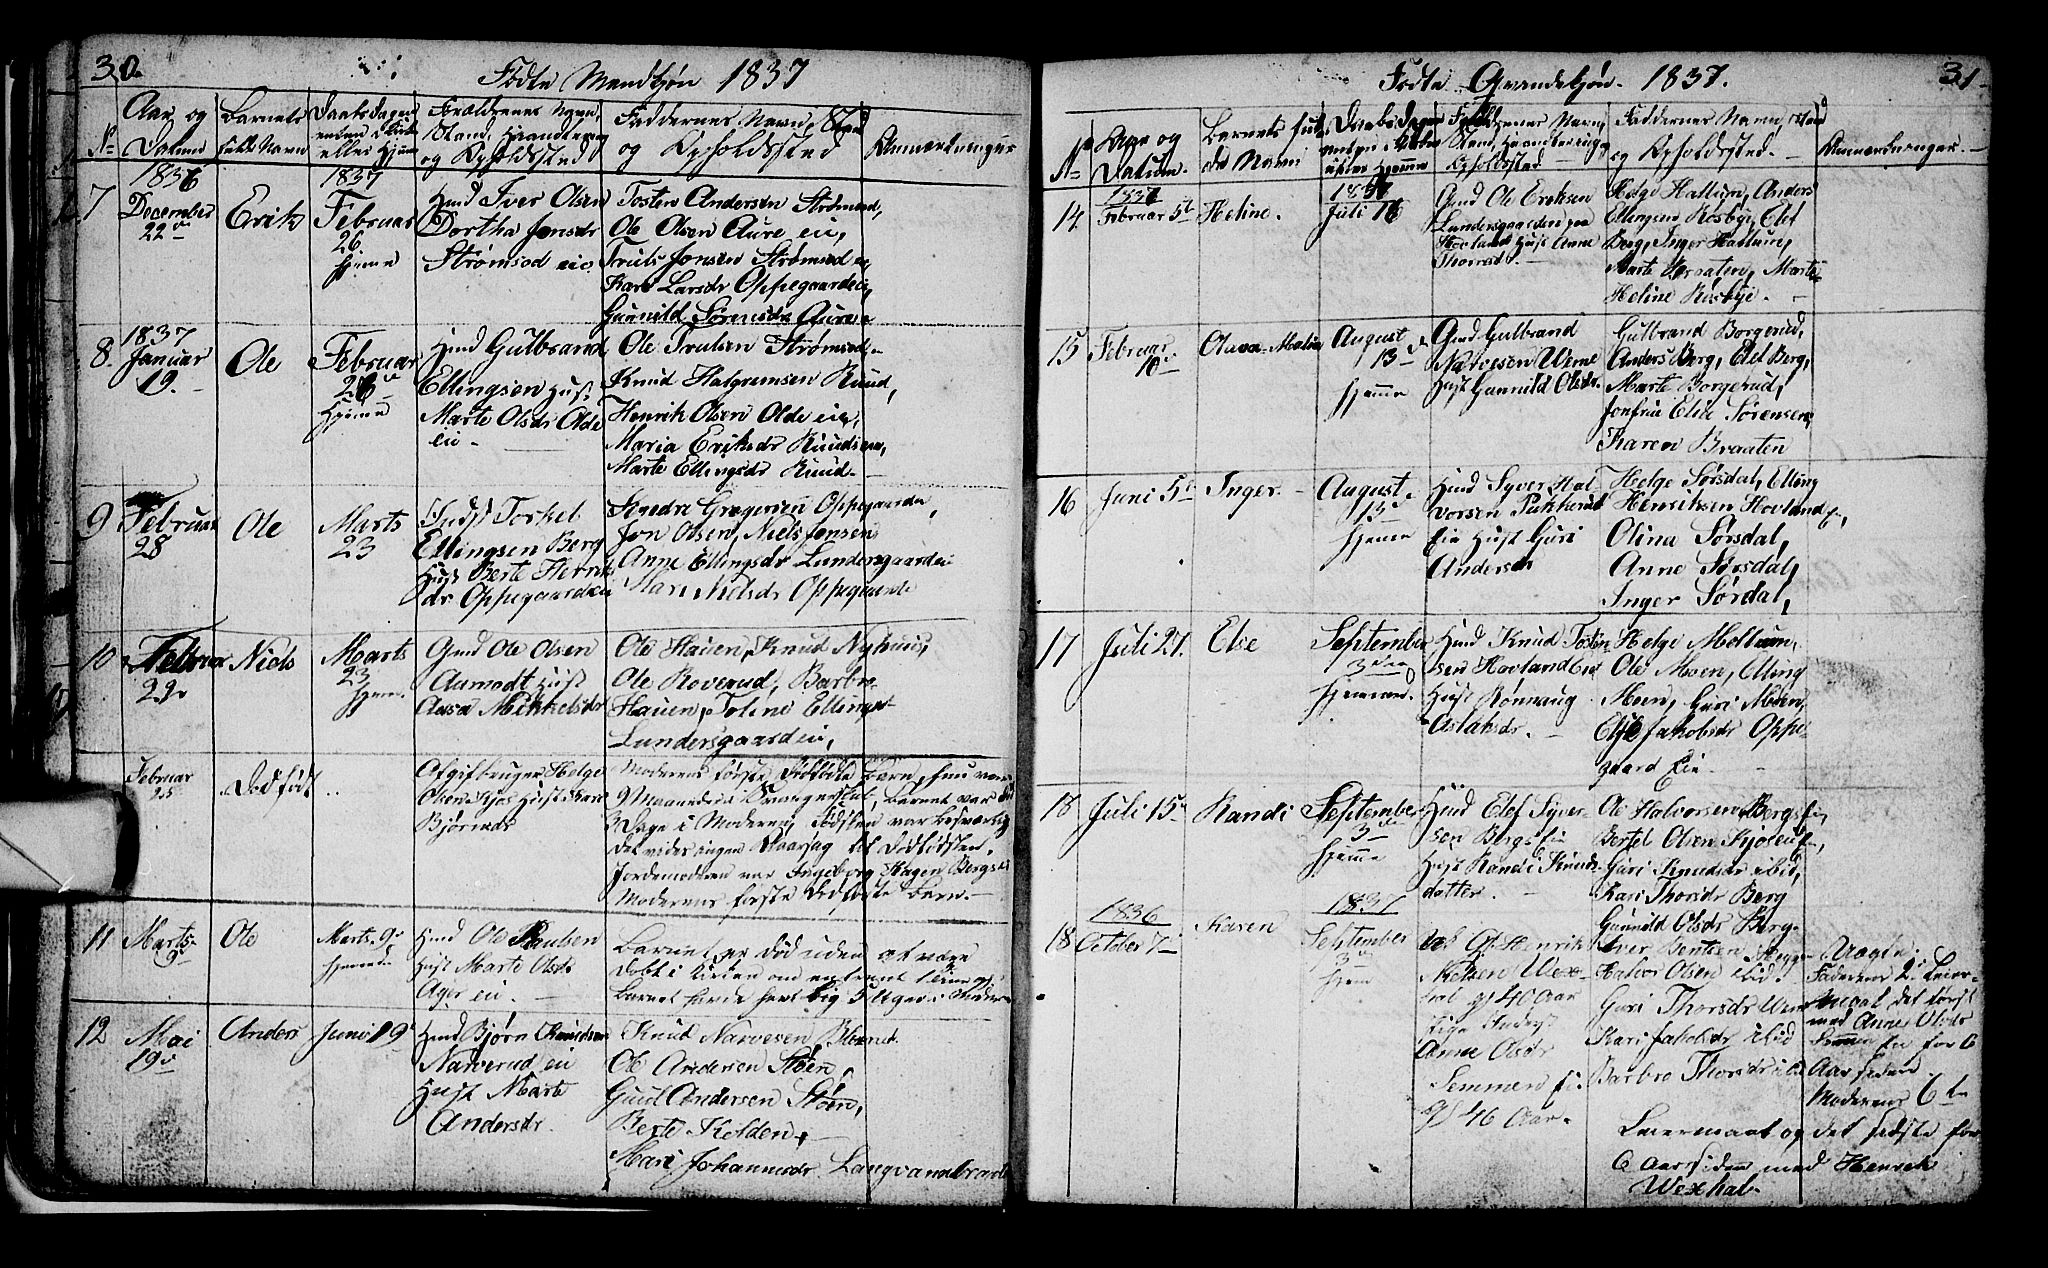 30
Fødte Mandkjøn 1837
No
Aar og
Datum
Barnets
fulde Navn
Daabsdagen
enten i Kirke
eller Hjemme
Forældrenes Navn,
Stand, Haandtering
og Opholdssted
Faddernes Navn, Stand
og Opholdssted
Anmærkninger
7
1836
December
22de
Erik
1837
Februar
26
hjemme
Huusmd Iver Olsen
Dorthe Jonsdr
Strømsod eie
Tosten Andersen Strømsod,
Ole Olsen Aure eie,
Truls Jonsen Strømsod eie
Kari Larsdr Oppegaardeie,
Gunnild Sørensdr Aure e
8.
1837
Januar
19.
Ole
Februar
26de
Hjemme
Huusmd Gulbrand
Ellingsen Hust
Marte Olsdr Olde
eie
Ole Trulsen Strømsod
Knud Halgrumsen Ruud,
Henrik Olsen Olde eie,
Maria Eriksdr Ruudseie,
Marte Ellingsdr Ruud
9
Februar
28
Ole
Marts
23
Inds. Torkel
Ellingsen Berg
Hust Berte Henriks
dr Oppegaardeie
Gregersen Oppegaardeie,
Jon Olsen, Niels Jonsen
Anne Ellingsdr Lundersgaardeie
Mari Nielsdr Oppegaardeie
10
Februar
23
Niels
Marts
23
hjemme
Gmd Ole Olsen
Aamodt Hust
Aasa Mikkelsdr
Ole Hauen, Knud Nyhuus,
Ole Roverud, Barbro
Hauen, Toline Ellingsdr
Lundersgaardeie,
Februar
25
Dødfødt
Afgifbruger Helge
Olsen Kjos Hust Kari
Bjørnsdr
Moderens første Dødfødte Barn, hun var
9 Maaneder i Svangerskab, Barnet var død
3 Dage i Moderen, Fødslen var besværlig
det vides ingen Aarsag til Dødfødslen.
Jordemoderen var Ingeborg Hagen Bergseie
Moderens første Dødfødte Barn.
11
Marts
9de
Ole
Marts 9de
hjemme
Huusmd Ole Paulsen
Hust Marte Olsdr
Ager eie.
Barnet er død uden at være
12
Mai
19de
Anders
Juni 19de
Huusmd Bjørn Knudsen
Narverud eie
Hust Marte
Andersdr.
Knud Narvesen
Ole Andersen Støen,
Guul Andersen Støen,
Berte Kolden,
Mari Johannesdr. Langvandbraaten
Fødte Qvindekjøn 1837.
31
No
Aar og
Datum.
Barnets ful
de Navn
Daabsdagen
enten i Kirke
eller Hjemme
Forældrenes Navn,
Stand, Haandtering og
Opholdssted
Faddernes Navn, Stand
og Opholdssted.
Anmærkninger.
14.
1837
Februar 5te
Heline.
1837
Juli 16
Gmd Ole Eriksen
Lundersgaarden paa
Hovland Hust Anne
Thorsdr.
Helge Hallum, Anders
Ellingsen Rosbye, Elef
Berg, Inger Hallum,
Marte Braaten, Marte
Heline Rosbye.
15
Februar
10de
Olava Malia
August
13de
hjemme
Gmd Gulbrand
Narvesen Werne
Hust Gunnild Olsdr.
Gulbrand Borgerud,
Anders Berg, Elef Berg,
Marte Borgerud,
Jomfrue Elise Sørensen,
Karen Braaten
16
Juni 5te
Inger.
August
13de
hjemme
Huusmd Syver Hal
vorsen Pukkerud
Eie Hust Guri
Andersdr
Helge Sørsdal, Elling
Henriksen Hovland E,
Olina Sørsdal,
Anne Sørsdal,
Inger Sørdal,
17
Juli 27.
Else
September
3die
hjemme.
Huusmd Knud Tosten
sen Hovland Eie
Hust Rønnaug
Aslaksdr.
Helge Mollum,
Ole Moen, Elling
Moen, Guri Moen,
Else Jakobsdr Oppe
gaard Eie
18
Juli 15de
Randi
September
3die
hjemme
Huusmd Elef Syver
sen Bergs Eie
Hust Randi Knuds
datter.
Ole Halvorsen Bergs Eie,
Bertel Olsen Kjos Eie,
Guri Knudsdr ibid,
Kari Thorsdr Berg
Gunnild Olsdr Berg
18
1836
October 7
Karen
1837
September
3die
hjem
Henrik
Nielsen Wex
hal gl 40 Aar
Pige Inders
Anne Olsdr
Semmen Eie
gl 46 Aar.
Iver Bentsen
Halvor Olsen ibid
Guri Thorsdr
Kari Jakobsdr ibid
Barbro Thorsdr ibid
Uægte
Faderens 2de Leier
maal det først
med Anne Olsdr
Semmen Eie for 6
Aar siden
Moderens 6te
Leiermaal og det sidste for
6 Aar siden med Henrik
Wexhal